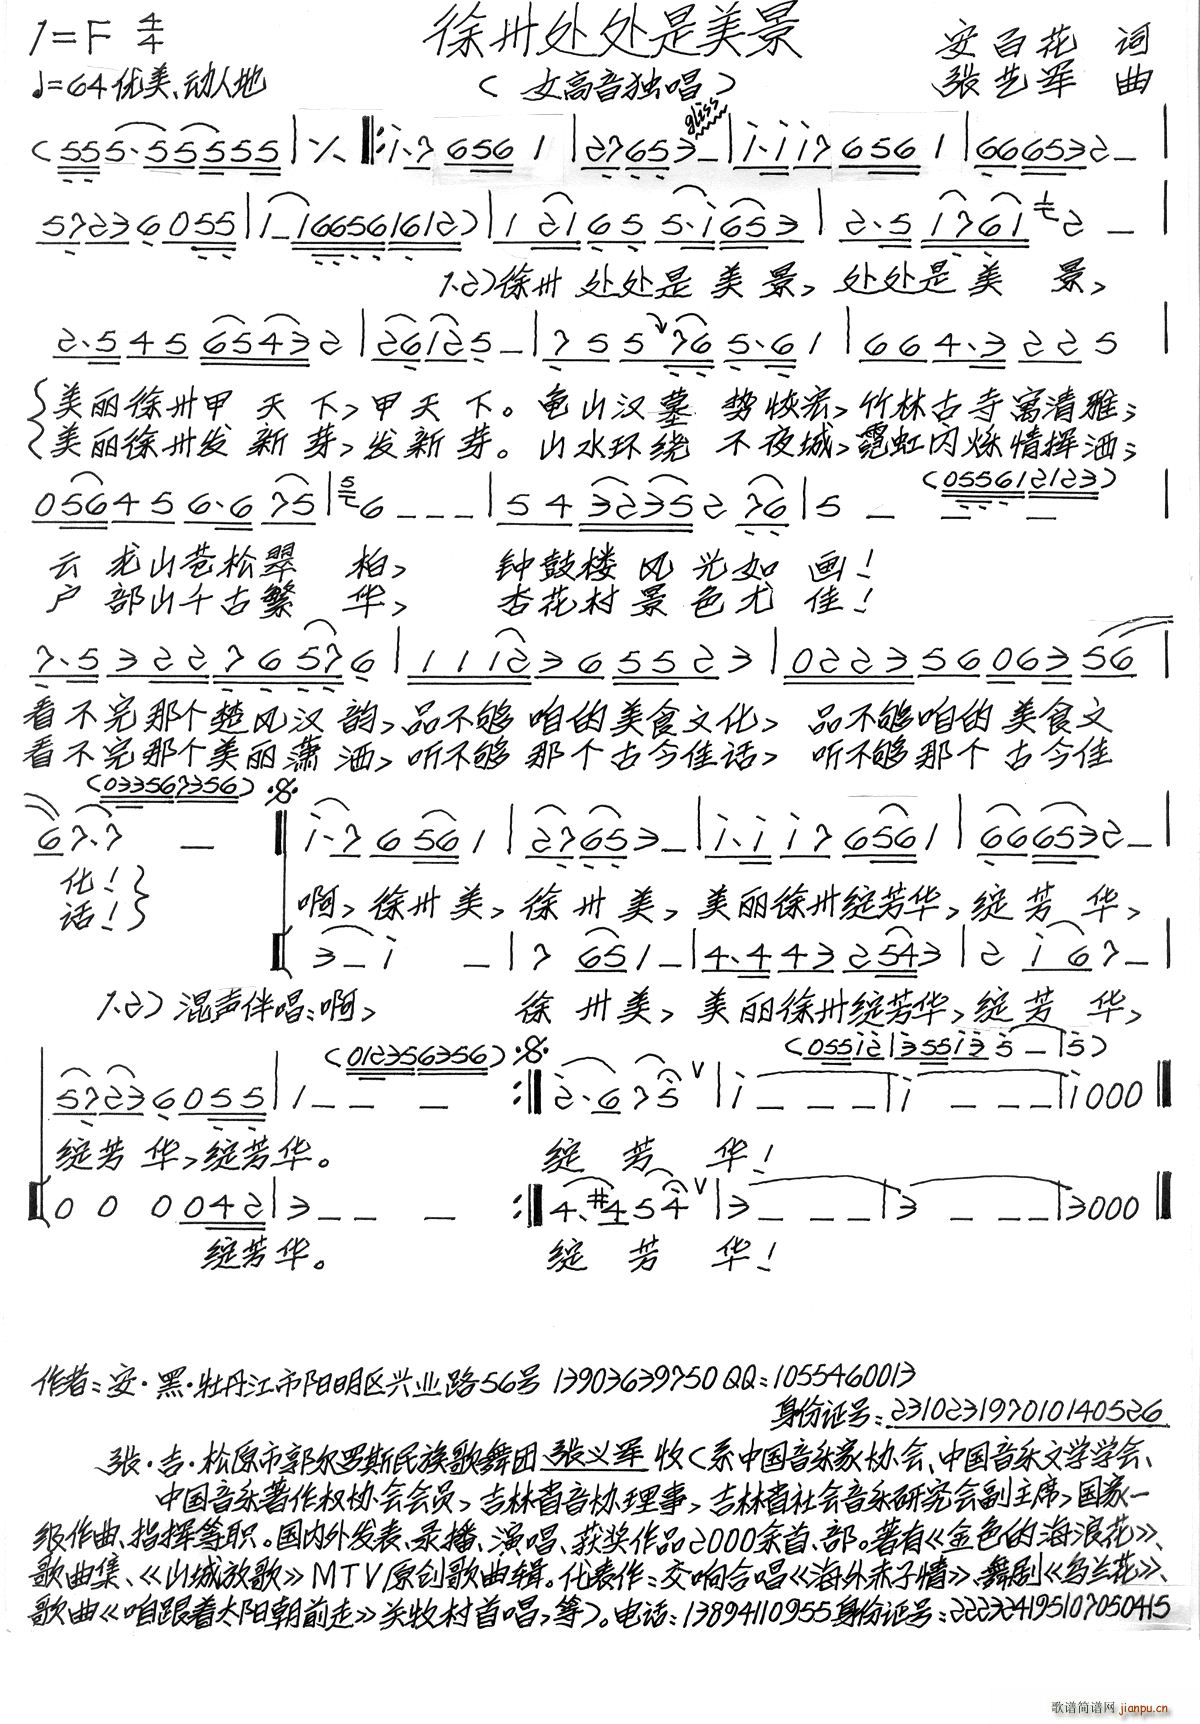 1=F 4/4
徐州处处是美景
安百花 词
♩=64 优美、动人地
(女高音独唱)
张艺军 曲
(555·55555 | ٪ ‖: i·7 6561 | 27653– | i·ii7 6561 | 666532– |
gliss
57236055 | i–i665616i2) | 1 21 65 5·i653 | 2·5 i76i 2 – |
1.2)徐州 处处是 美 景, 处处是 美 景,
2·545 65432 | 26125– | 7557 65·61 | 664·3 225 |
美丽徐州甲 天 下,甲天 下。龟山汉墓 势恢宏,竹林古寺寓清雅;
美丽徐州发 新 芽,发新 芽。山水环绕 不夜城,霓虹闪烁情挥洒;
(055612123)
056456·675 | 6––– | 543235276 | 5 – – – |
云 龙山苍松翠 柏, 钟鼓楼 风 光如 画!
户 部山千古繁 华, 杏花村 景 色尤 佳!
7·5322 76576 | 11123655 23 | 0223560635 6 |
看不完那个楚风汉 韵,品不够 咱的美食文化, 品不够咱的 美食文
看不完那个美丽潇 洒,听不够 那个古今佳话, 听不够那个 古今佳
(033567356)
67·7 – ‖ i·7 6561 | 27653– | i·ii7 6561 | 666532– |
化!
话!
啊,徐州美,徐 州 美,美丽徐州绽芳华,绽 芳 华,
3–i – | 7 651– | 4·443 2543 | 2 i 67– |
1.2)混声伴唱:啊, 徐 州美,美丽徐州绽芳华,绽芳 华,
(012356356) (055i2i355i35–|5)
57236055 | 1–– – :‖ 2·675 ∨ | i ––– | i ––– | i000 ‖
绽芳 华,绽芳华。 绽 芳 华!
0 0 0042 | 3–– – :‖ 4·#454 ∨ | 3––– | 3 ––– | 3000 ‖
绽芳华。 绽 芳 华!
作者:安·黑·牡丹江市阳明区兴业路56号 13903639750 QQ:1055460013
身份证号:231023197010140526
张·吉·松原市郭尔罗斯民族歌舞团张义军 收(系中国音乐家协会、中国音乐文学学会、
中国音乐著作权协会会员,吉林省音协理事,吉林省社会音乐研究会副主席,国家一
级作曲、指挥等职。国内外发表、录播、演唱、获奖作品2000余首、部。著有《金色的海浪花》、
歌曲集、《山城放歌》MTV原创歌曲辑。代表作:交响合唱《海外赤子情》、舞剧《乌兰花》、
歌曲《咱跟着太阳朝前走》关牧村首唱,等)。电话:13894110955身份证号:222324195107050415
歌谱简谱网
jianpu.cn